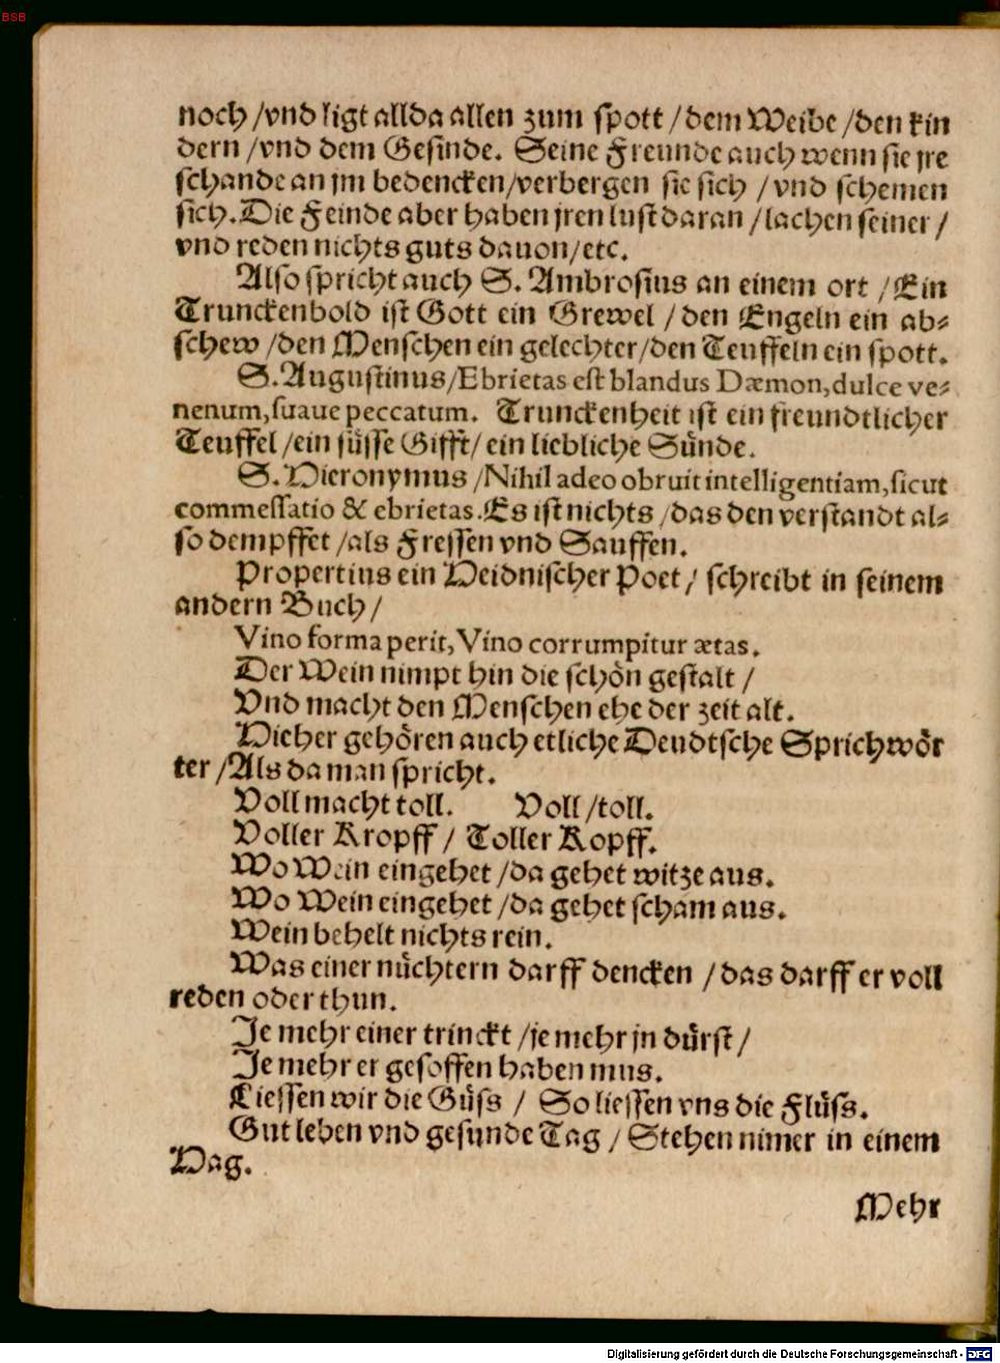 BSB
noch /vnd ligt allda allen zum spott /dem Weibe /den kin
dern /vnd dem Gesinde. Seine Freunde auch wenn sie jre
schande an jm bedencken/verbergen sie sich /vnd schemen
sich. Die Feinde aber haben jren lust daran /lachen seiner /
vnd reden nichts guts dauon/etc.
Also spricht auch S. Ambrosius an einem ort /Ein
Trunckenbold ist Gott ein Grewel /den Engeln ein ab⸗
schew /den Menschen ein gelechter/den Teuffeln ein spott.
S. Augustinus/Ebrietas est blandus Dæmon, dulce ve⸗
nenum, suaue peccatum. Trunckenheit ist ein freundtlicher
Teuffel /ein süsse Gifft/ ein liebliche Sünde.
S. Hieronymus /Nihil adeo obruit intelligentiam, sicut
commessatio & ebrietas. Es ist nichts /das den verstandt al⸗
so dempffet /als Fressen vnd Sauffen.
Propertius ein Heidnischer Poet/ schreibt in seinem
andern Buch/
Vino forma perit, Vino corrumpitur ætas.
Der Wein nimpt hin die schön gestalt /
Vnd macht den Menschen ehe der zeit alt.
Hieher gehören auch etliche Deudtsche Sprichwör
ter /Als da man spricht.
Voll macht toll. Voll /toll.
Voller Kropff / Toller Kopff.
Wo Wein eingehet /da gehet witze aus.
Wo Wein eingehet /da gehet scham aus.
Wein behelt nichts rein.
Was einer nüchtern darff dencken /das darff er voll
reden oder thun.
Je mehr einer trinckt /je mehr jn dürst/
Je mehr er gesoffen haben mus.
Liessen wir die Güss / So liessen vns die Flüss.
Gut leben vnd gesunde Tag / Stehen nimer in einem
Hag.
Mehr
Digitalisierung gefördert durch die Deutsche Forschungsgemeinschaft - DFG